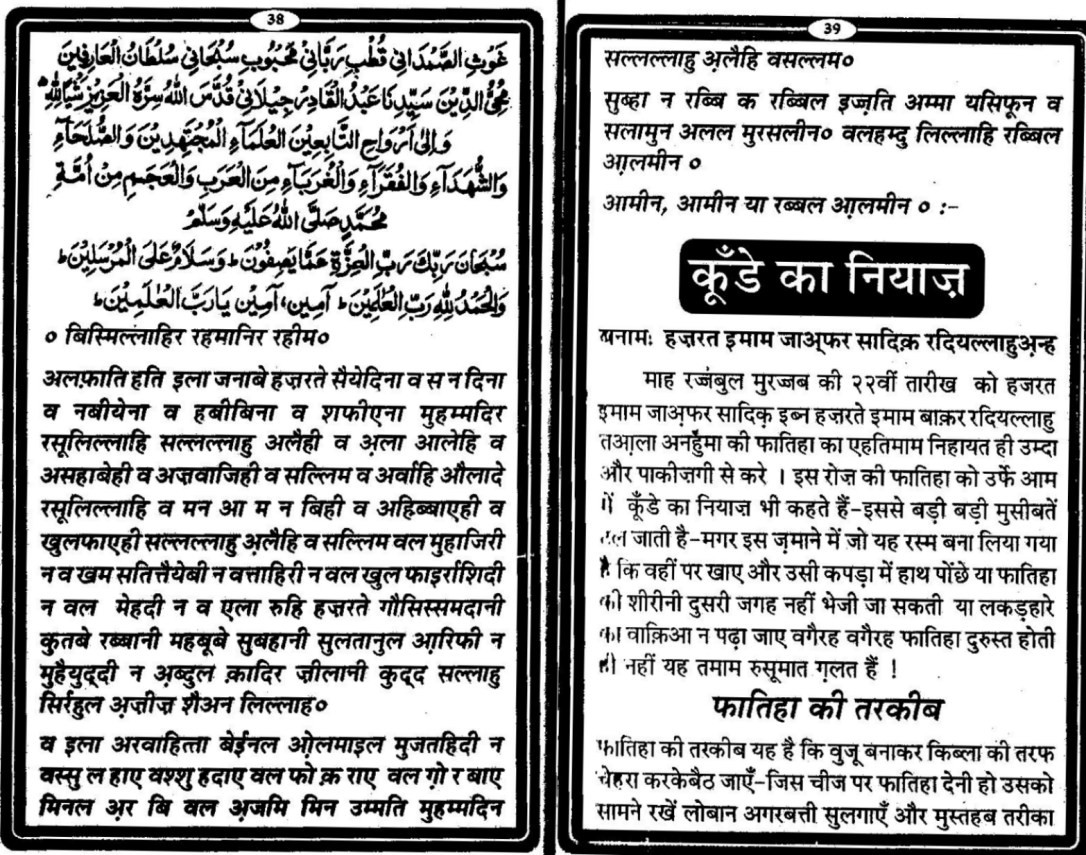 38
غَوْثِ الصَّمَدَانِي قُطْبِ رَبَّانِي مَحْبُوبِ سُبْحَانِي سُلْطَانُ الْعَارِفِيْنَ
مُحِيُّ الدِّيْنَ سَيِّدِنَا عَبْدُ الْقَادِرِ جِيْلَانِي قُدِّسَ اللهُ سِرَّهُ الْعَزِيْزِ شَيْأً لِلّٰهِ
وَاِلٰى اَرْوَاحِ التَّابِعِيْنَ الْعُلَمَاءِ الْمُجْتَهِدِيْنَ وَالصُّلَحَاءِ
وَالشُّهَدَاءِ وَالْفُقَرَاءِ وَالْغُرَبَاءِ مِنَ الْعَرَبِ وَالْعَجَمِ مِنْ اُمَّةِ
مُحَمَّدٍ صَلَّى اللهُ عَلَيْهِ وَسَلَّمْ
سُبْحَانَ رَبِّكَ رَبِّ الْعِزَّةِ عَمَّا يَصِفُوْنَ ط وَسَلَامٌ عَلَى الْمُرْسَلِيْنَ ط
وَالْحَمْدُ لِلّٰهِ رَبِّ الْعَالَمِيْنَ ط آمِيْن، آمِيْن يَا رَبَّ الْعٰلَمِيْنَ ط
० बिस्मिल्लाहिर रहमानिर रहीम०
अलफ़ाति हति इला जनाबे हज़रते सैयेदिना व स न दिना
व नबीयेना व हबीबिना व शफीएना मुहम्मदिर
रसूलिल्लाहि सल्लल्लाहु अलैही व अ़ला आलेहि व
असहाबेही व अज़वाजिही व सल्लिम व अर्वाहि औलादे
रसूलिल्लाहि व मन आ म न बिही व अहिब्बाएही व
खुलफाएही सल्लल्लाहु अ़लैहि व सल्लिम वल मुहाजिरी
न व खम सतित्तैयेबी न वत्ताहिरी न वल खुल फाइर्राशिदी
न वल मेहदी न व एला रुहि हज़रते गौसिस्समदानी
कुतबे रब्बानी महबूबे सुबहानी सुलतानुल आ़रिफी न
मुहैयुद्‌दी न अ़ब्दुल क़ादिर ज़ीलानी कुद्‌द सल्लाहु
सिर्रहुल अ़ज़ीज़ शैअन लिल्लाह०
व इला अरवाहित्ता बेईनल ओ़लमाइल मुजतहिदी न
वस्सु ल हाए वश्शु हदाए वल फो क़ राए वल गो़ र बाए
मिनल अ़र बि वल अ़जमि मिन उम्मति मुहम्मदिन
39
सल्लल्लाहु अ़लैहि वसल्लम०
सुब्हा न रब्बि क रब्बिल इज़्ज़ति अम्मा यसिफून व
सलामुन अलल मुरसलीन० वलहम्दु लिल्लाहि रब्बिल
आ़लमीन ०
आमीन, आमीन या रब्बल आ़लमीन ० :-
कूँडे का नियाज़
बनामः हज़रत इमाम जाअ़्फर सादिक़ रदियल्लाहुअ़न्ह
माह रज्जबुल मुरज्जब की २२वीं तारीख को हजरत
इमाम जाअ़फर सादिक़ इब्न हज़रते इमाम बाक़र रदियल्लाहु
तआ़ला अनहुमा की फातिहा का एहतिमाम निहायत ही उम्दा
और पाकीज़गी से करे । इस रोज़ की फातिहा को उर्फे आम
में कूँडे का नियाज़ भी कहते हैं-इससे बड़ी बड़ी मुसीबतें
टल जाती है-मगर इस ज़माने में जो यह रस्म बना लिया गया
है कि वहीं पर खाए और उसी कपड़ा में हाथ पोंछे या फातिहा
की शीरीनी दुसरी जगह नहीं भेजी जा सकती या लकड़हारे
का वाक़िआ न पढ़ा जाए वगैरह वगैरह फातिहा दुरुस्त होती
ही नहीं यह तमाम रुसूमात ग़लत हैं !
फातिहा की तरकीब
फातिहा की तरकीब यह है कि वुजू बनाकर किब्ला की तरफ
चेहरा करकेबैठ जाएँ-जिस चीज पर फातिहा देनी हो उसको
सामने रखें लोबान अगरबत्ती सुलगाएँ और मुस्तहब तरीका